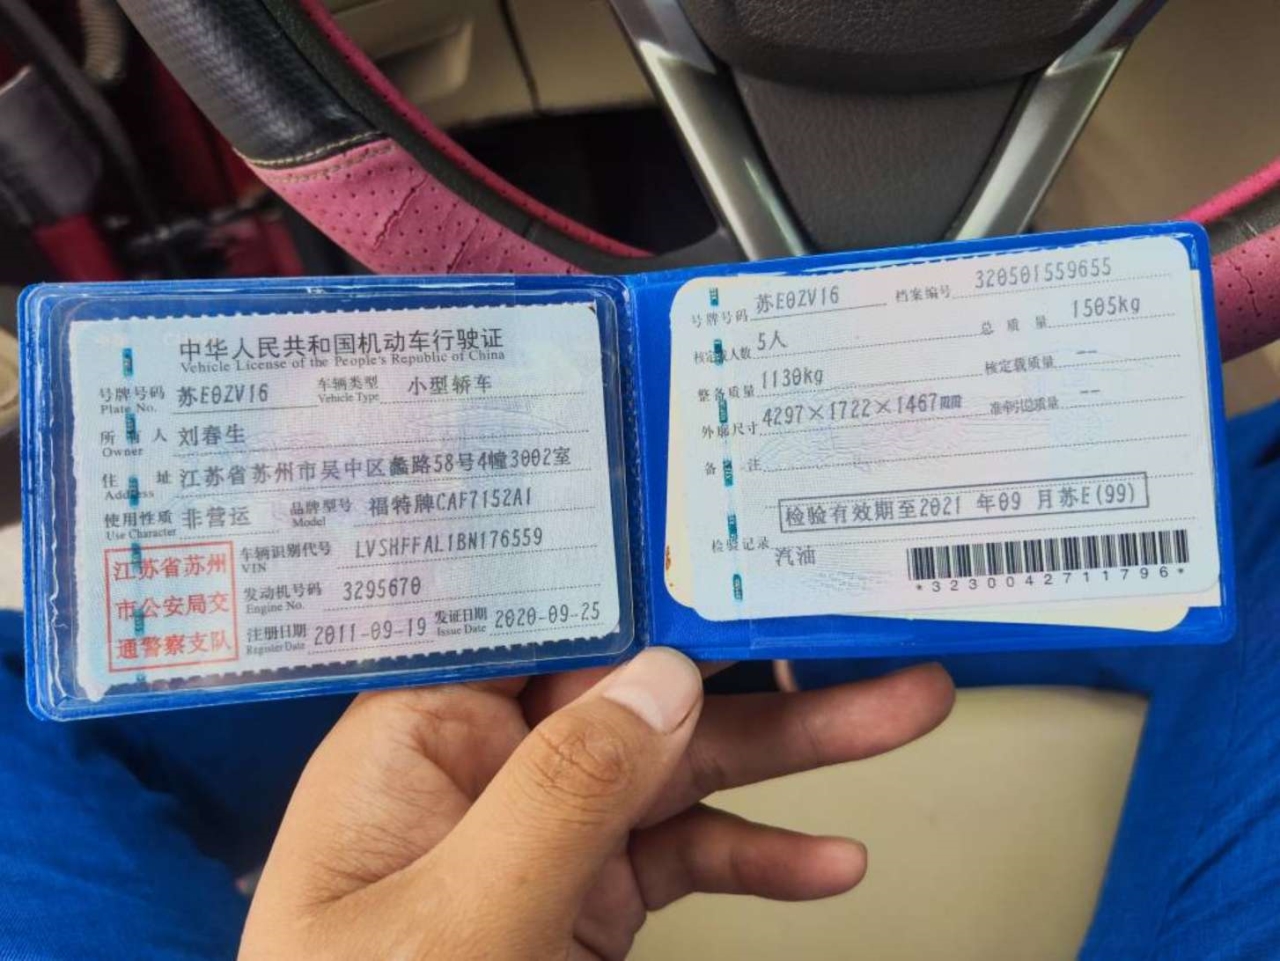 中华人民共和国机动车行驶证
Vehicle License of the People's Republic of China
号牌号码 苏E0ZV16 车辆类型 小型轿车
Plate No. Vehicle Type
所有人 刘春生
Owner
住址 江苏省苏州市吴中区蠡路58号4幢3002室
Address
使用性质 非营运 品牌型号 福特牌CAF7152A1
Use Character Model
江苏省苏州
市公安局交
通警察支队
车辆识别代号 LVSHFFAL1BN176559
VIN
发动机号码 3295670
Engine No.
注册日期 2011-09-19 发证日期 2020-09-25
Register Date Issue Date
号牌号码 苏E0ZV16 档案编号 320501559655
核定载人数 5人 总质量 1505kg
整备质量 1130kg 核定载质量 --
外廓尺寸 4297×1722×1467 准牵引总质量 --
备注
检验有效期至2021 年09 月苏E(99)
检验记录
汽油
*3230042711796*